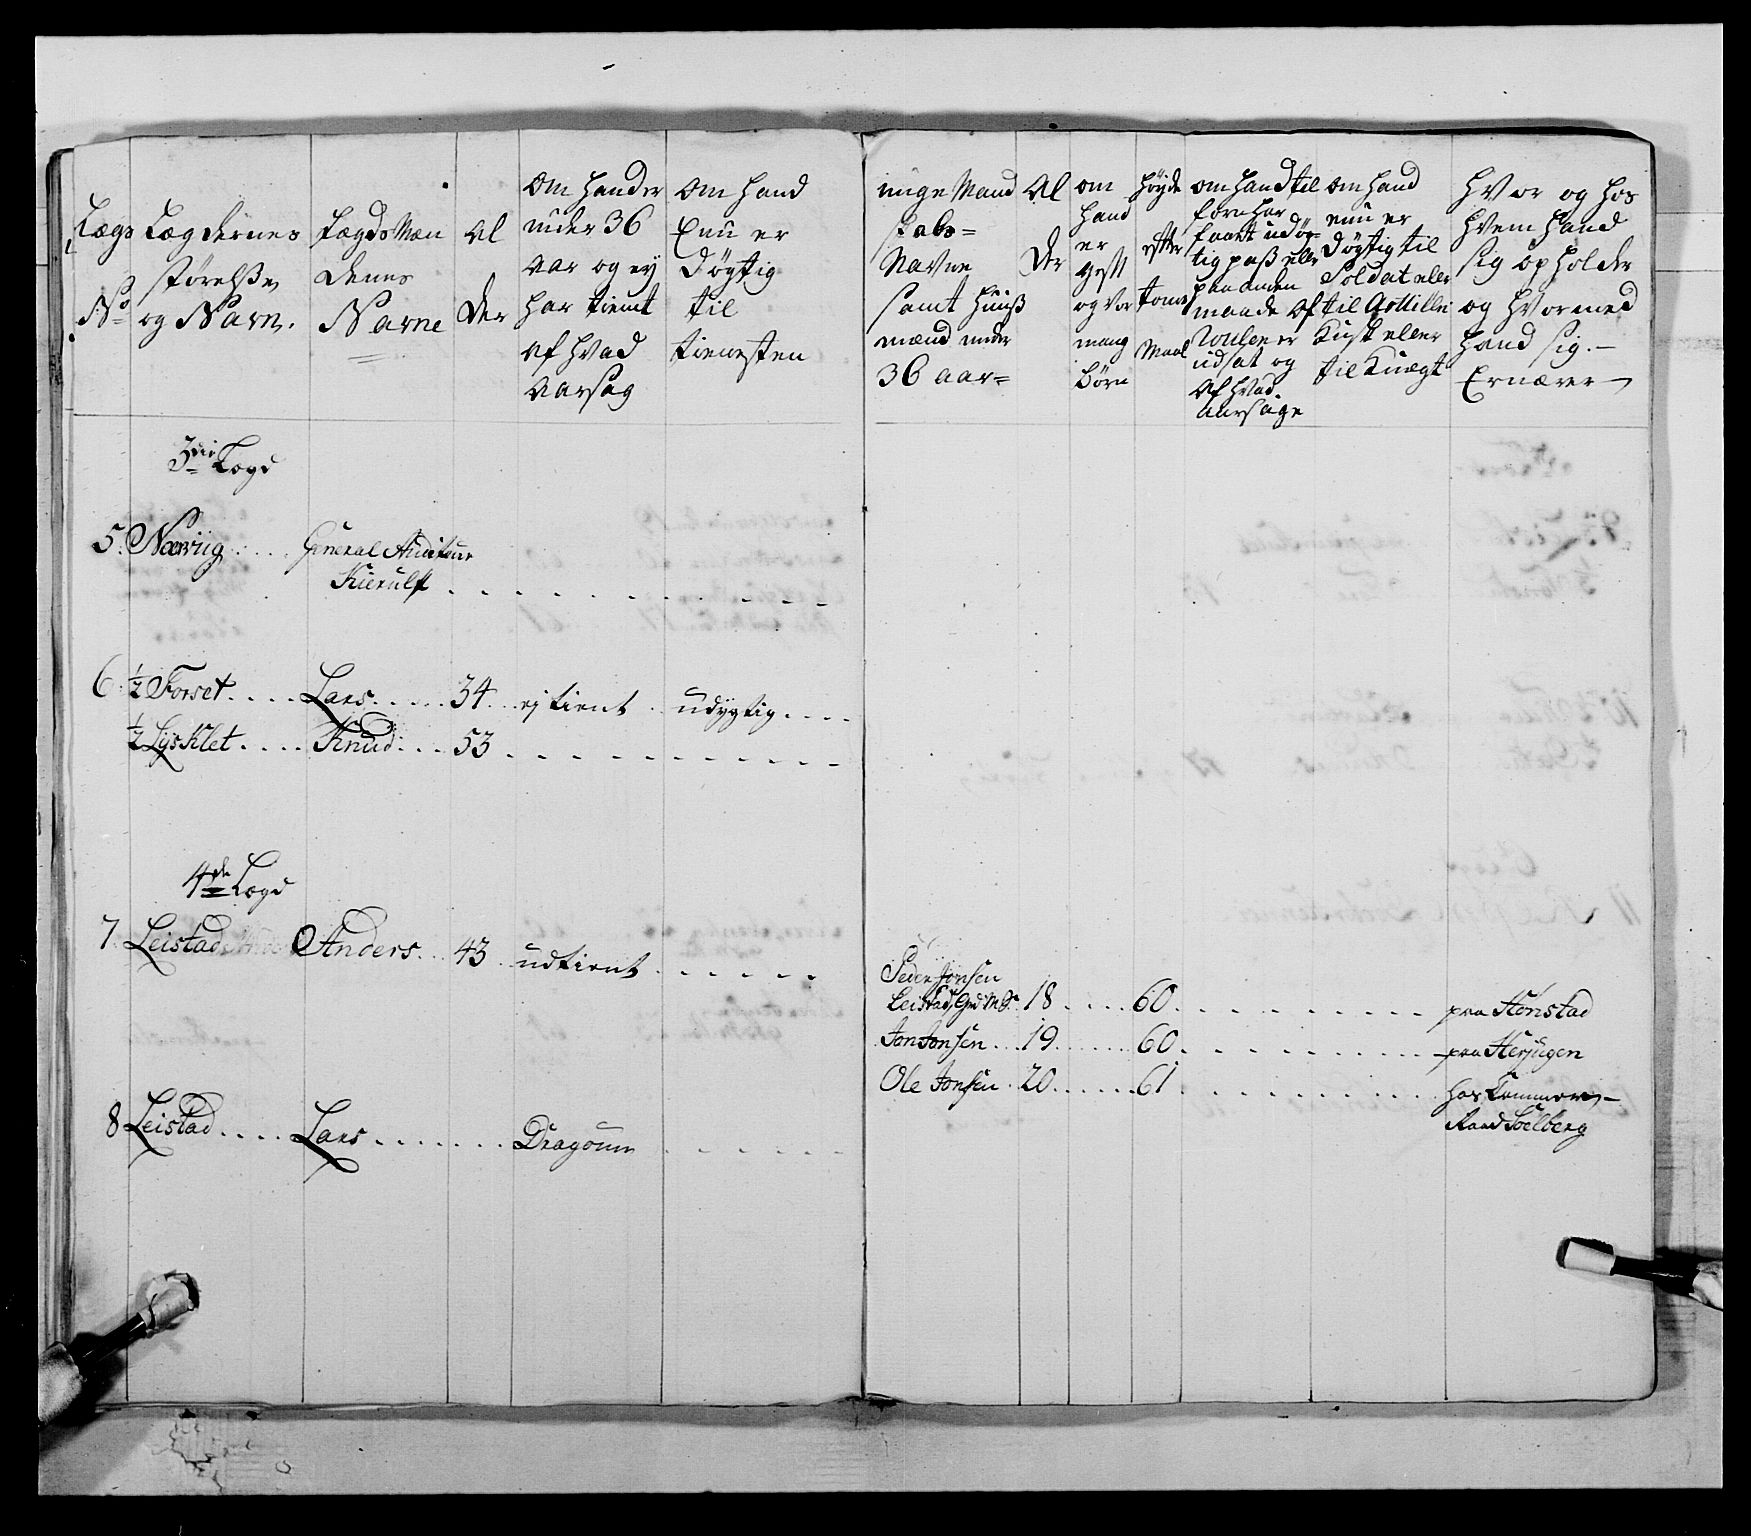 Lægs
No
Lægdernes
størelsse
og Navn.
Lægds Mæn
denes
Navne
Al
der
Om hand er
under 36
aar og ey
har tient
af hvad
aarsag
Om hand
Enu er
døgtig
til
tienesten
unge Mand
skabs=
Navne
samt huuss
mænd under
36 aar=
Al
der
om
hand
er
gift
og hvor
mang
børn
høyde
efter
tome
Maal
om hand til
forn har
faaet udøg=
tig pass eller
paa anden
maade af
Roulen er
udsat og
af hvad
aarsage
om hand
enu er
døgtig til
Soldat eller
til Artilleri
Kusk eller
til Knægt
hvor og hos
hvem hand
sig opholder
og hvormed
hand sig.
Ernærer
3die Lægd
5. Nærvig .... General Auditeur
Kierulf
6. ½ Forset .... Lars ..... 34 ... ej tient .. udygtig ....
½ Lysklet .... Knud ... 53
4de Lægd
7. Leistad Anders ... 43 .. udtient
Peder Jonsen
Leistad, Grd M S. 18 .... 60 ........ paa Hønstad
Jon Jonsen ... 19 ...... 60 ........ paa Herjugen
Ole Jonsen . 20 ...... 61 ........ hos Kammer-
Raad Soelberg
8 Leistad .... Lars ....... Dragoun